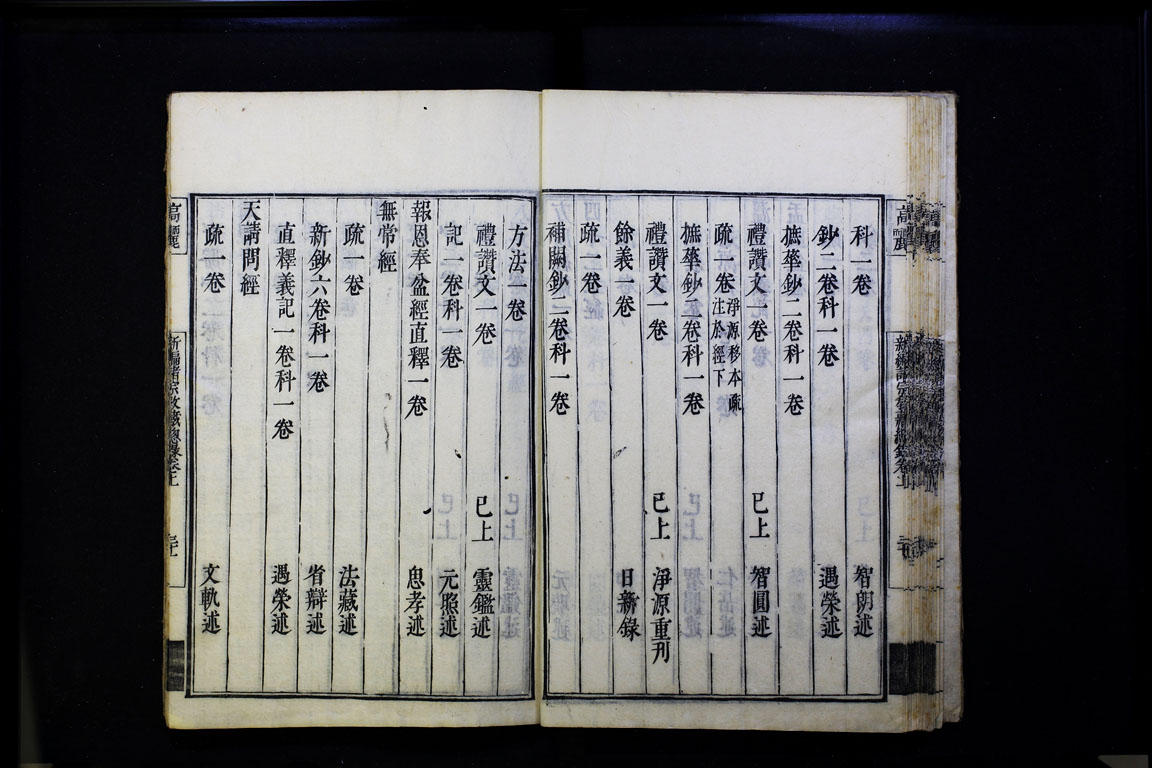 科一卷 智朗述
鈔二卷科一卷 遇榮述
摭華鈔二卷科一卷
禮讚文一卷 已上 智圓述
疏一卷 淨源移本疏
注於經下
摭華鈔二卷科一卷
禮讚文一卷 已上 淨源重刊
餘義一卷 日新錄
疏一卷
補闕鈔二卷科一卷
方法一卷
禮讚文一卷 已上 靈鑑述
記一卷科一卷 元照述
報恩奉盆經直釋一卷 思孝述
無常經
疏一卷 法藏述
新鈔六卷科一卷 省辯述
直釋義記一卷科一卷 遇榮述
天請問經
疏一卷 文軌述
高麗
新編諸宗教藏總錄卷上